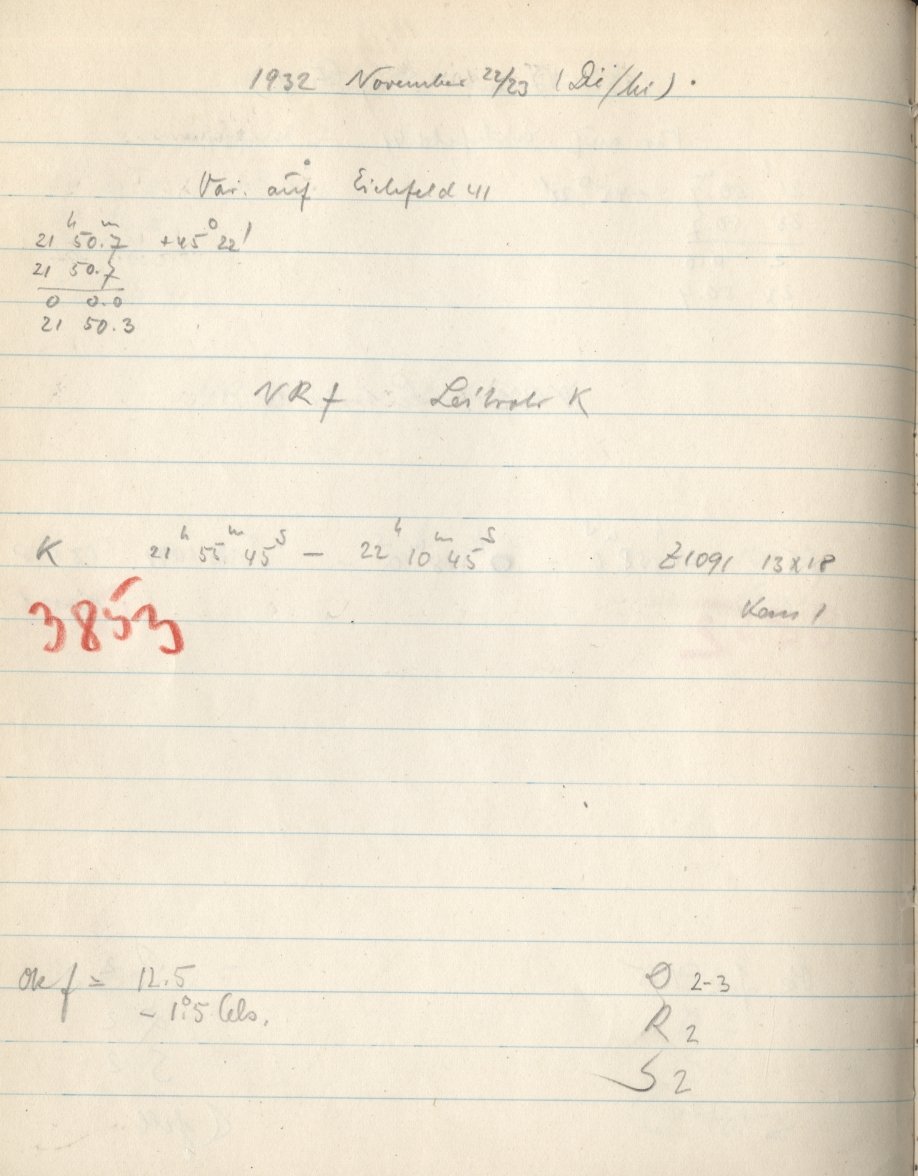 1932 November 22/23 (Di/Mi).
Var. auf Eichfeld 41
21ʰ 50.ᵐ7 +45° 22'
21 50.7
0 0.0
21 50.3
NRf Leitrohr K
K 21ʰ 55ᵐ 45ˢ – 22ʰ 10ᵐ 45ˢ Z1091 13x18
3853 Kass 1
Ok f = 12.5
– 1°.5 Cels.
2-3
R 2
S 2